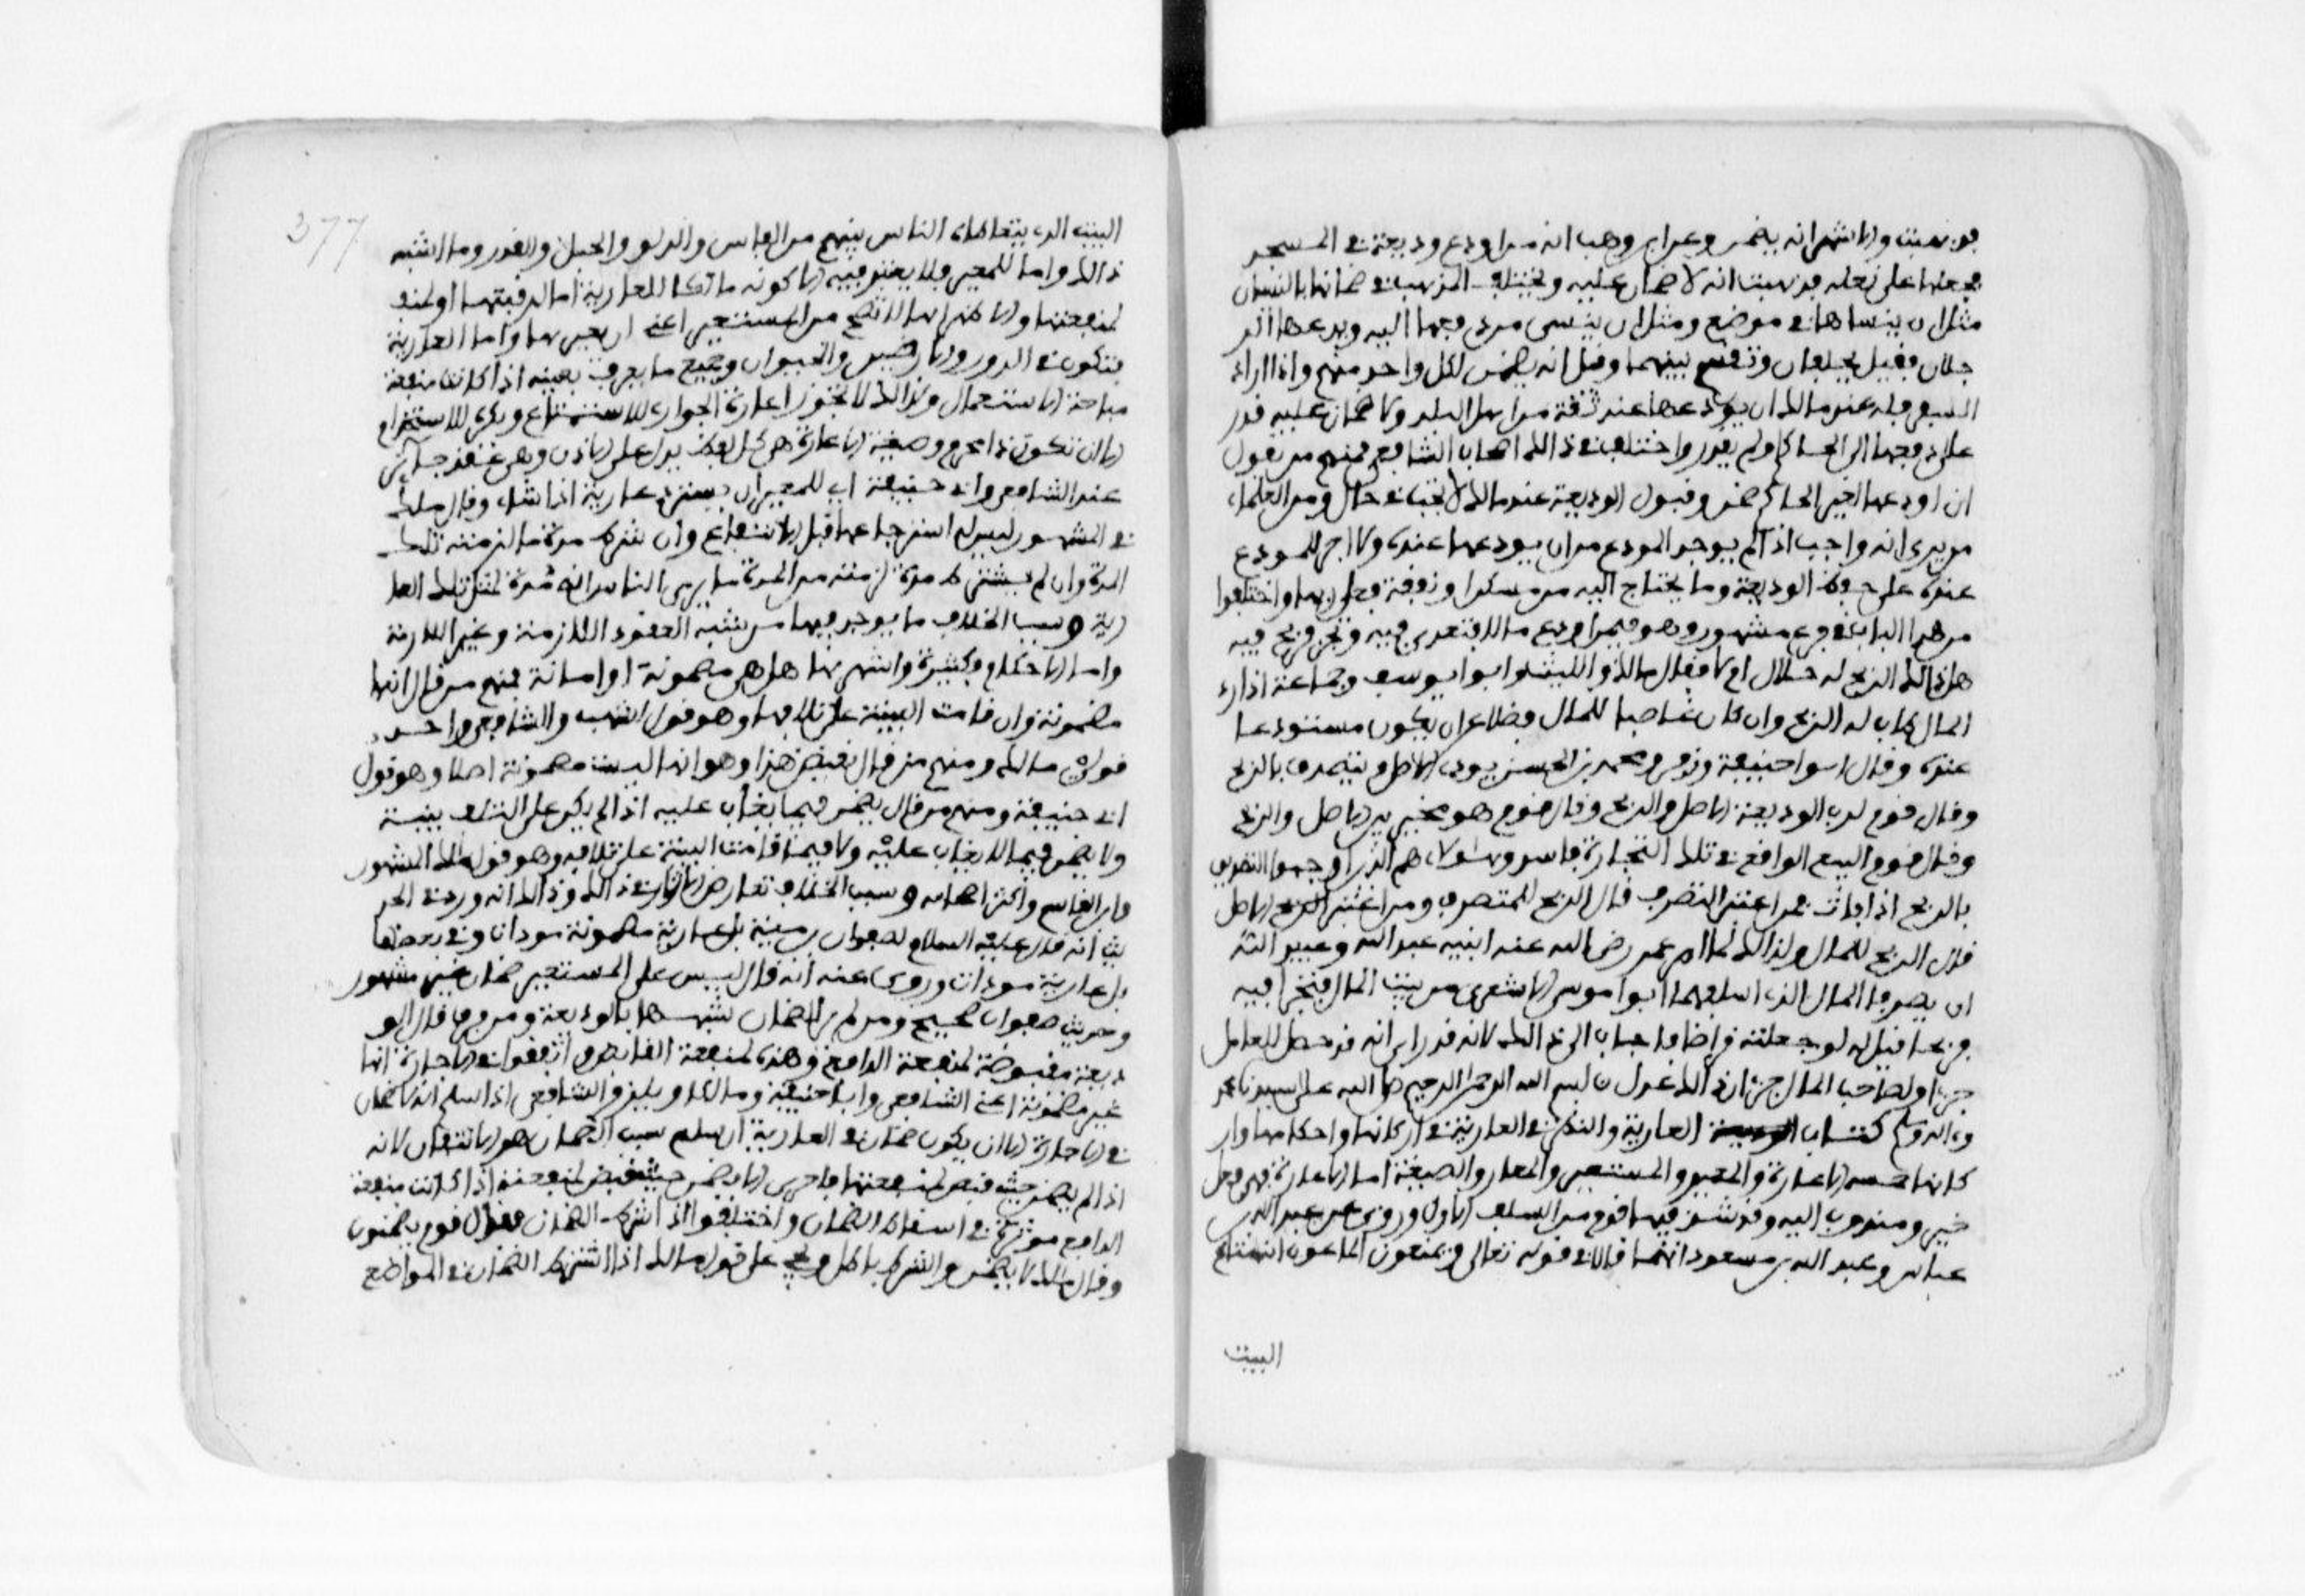 فذهبت والاشهر انه يضمن وعن ابن وهب انه من اودع وديعة في المسجد
فجعلها على نعله فذهبت انه لا ضمان عليه ويختلف المذهب في ضمانها بالنسيان
مثل ان ينساها في موضع ومثل ان ينسى من دفعها اليه ويدعيها الر
جلان فقيل يحلفان وتقسم بينهما وقيل انه يضمن لكل واحد منهم واذا اراد
السفر فله عند مالك ان يودعها عند ثقة من اهل البلد ولا ضمان عليه قدر
على دفعها الى الحاكم او لم يقدر واختلف في ذالك اصحاب الشافعي فمنهم من يقول
ان اودعها لغير الحاكم ضمن وقبول الوديعة عند مالك لا يجب في حال ومن العلماء
من يرى انه واجب اذا لم يوجد المودع من ان يودعها عنده ولا اجر للمودع
عنده على حفظ الوديعة وما يحتاج اليه من مسكن او نفقة فعلى ربها واختلفوا
من هذا الباب في فرع مشهور وهو فيمن اودع مالا فتعدى فيه وتجر فربح فيه
هل ذالك الربح له حلال ام لا فقال مالك والليث وابو يوسف وجماعة اذا رد
المال طاب له الربح وان كان غاصبا للمال فضلا عن ان يكون مستودعا
عنده وقال ابوا حنيفة وزفر ومحمد بن الحسن يودي الاصل ويتصدق بالربح
وقال قوم لرب الوديعة الاصل والربح وقال قوم هو مخير بين الاصل والربح
وقال قوم البيع الواقع في تلك التجارة فاسد وهولاء هم الذين اوجبوا التصدق
بالربح اذا مات فمن اعتبر التصرف قال الربح للمتصرف ومن اعتبر الاصل
قال الربح للمال ولذالك لما امر عمر رضي الله عنه ابنيه عبد الله وعبيد الله
ان يصرفا المال الذي اسلفهما ابوا موسى الاشعري من بيت المال فتجرا فيه
فربحا قيل له لو جعلته قراضا فاجاب الى ذالك لانه قد راى انه قد حصل للعامل
جزءا ولصاحب المال جزءا وان ذالك عدل بسم الله الرحمن الرحيم صلى الله على سيدنا محمد
واله وسلم كتاب العارية والنظر في العارية في اركانها واحكامها وار
كانها خمسه الاعارة والمعير والمستعير والمعار والصيغة اما الاعارة فهي فعل
خير ومندوب اليه وقد شدد فيها قوم من السلف الاول وروي عن عبد الله بن
عباس وعبد الله بن مسعود انهما قالا في قوله تعالى ويمنعون الماعون انه متاع
البيت
377
البيت الذي يتعاطاه الناس بينهم من الفاس والدلو والحبل والقدر وما اشبه
ذالك واما المعير فلا يعتبر فيه الا كونه مالكا للعارية اما لرقبتها او
لمنفعتها والاظهر انها لا تصح من المستعير اعني ان يعيرها واما العارية
فتكون في الدور والارضين والحيوان وجميع ما يعرف بعينه اذا كانت منفعته
مباحة الاستعمال ولذالك لا تجوز اعارة الجواري للاستمتاع ويكره للاستخدام
الا ان تكون ذا محرم وصيغة الاعارة هي كل لفظ يدل على الاذن وهي عقد جايز
عند الشافعي وابي حنيفة اي للمعير ان يسترد عاريته اذا شاء وقال مالك
في المشهور ليس له استرجاعها قبل الانتفاع وان شرط مدة ما لزمته تلك
المدة وان لم يشترط مدة لزمته من المدة ما يرى الناس انه مدة لمثل تلك العا
رية وسبب الخلاف ما يوجد فيها من شبه العقود اللازمة وغير اللازمة
واما الاحكام فكثيرة واشهرها هل هي مضمونة او امانة فمنهم من قال انها
مضمونة وان قامت البينة على تلافها وهو قول اشهب والشافعي واحد
قولي مالك ومنهم من قال نقيض هذا وهو انها ليست مضمونة اصلا وهو قول
ابي حنيفة ومنهم من قال يضمن فيما يغاب عليه اذا لم يكن على التلف بينة
ولا يضمن فيما لا يغاب عليه ولا فيما قامت البينة على تلافه وهو قول مالك المشهور
وابن القاسم واكثر اصحابه وسبب الخلاف تعارض الاثار في ذالك وذالك انه ورد في الحد
يث انه قال عليه السلام لصفوان بن امية بل عارية مضمونة موداة وفي بعضها
بل عارية موداة وروي عنه انه قال ليس على المستعير ضمان
وحديث صفوان صحيح ومن لم ير الضمان شبهها بالوديعة ومن فرق قال الو
ديعة مقبوضة لمنفعة الدافع وهذه لمنفعة القابض واتفقوا في الاجارة انها
غير مضمونة اعني الشافعي وابا حنيفة ومالكا ويلزم الشافعي اذا سلم انه لا ضمان
في الاجارة الا ان يكون ضمان في العارية ان سلم سبب الضمان هو الانتفاع لانه
اذا لم يضمن حيث قبض لمنفعتهما فاحرى الا يضمن حيث قبض لمنفعته اذا كانت منفعة
الدافع موثرة في اسقاط الضمان واختلفوا اذا شرط الضمان فقال قوم يضمنون
وقال مالك لا يضمن والشرط باطل ويجي على قول مالك اذا اشترط الضمان في المواضع